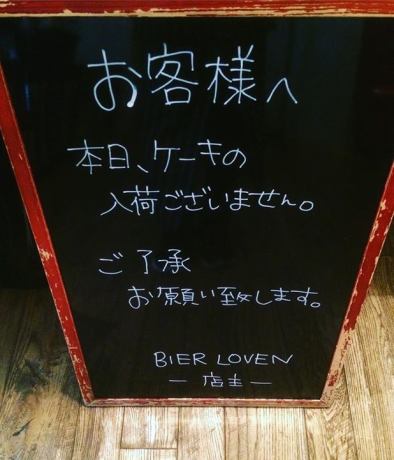 お客様へ
本日、ケーキの
入荷ございません。
ご了承
お願い致します。
BIER LOVEN
― 店主 ―